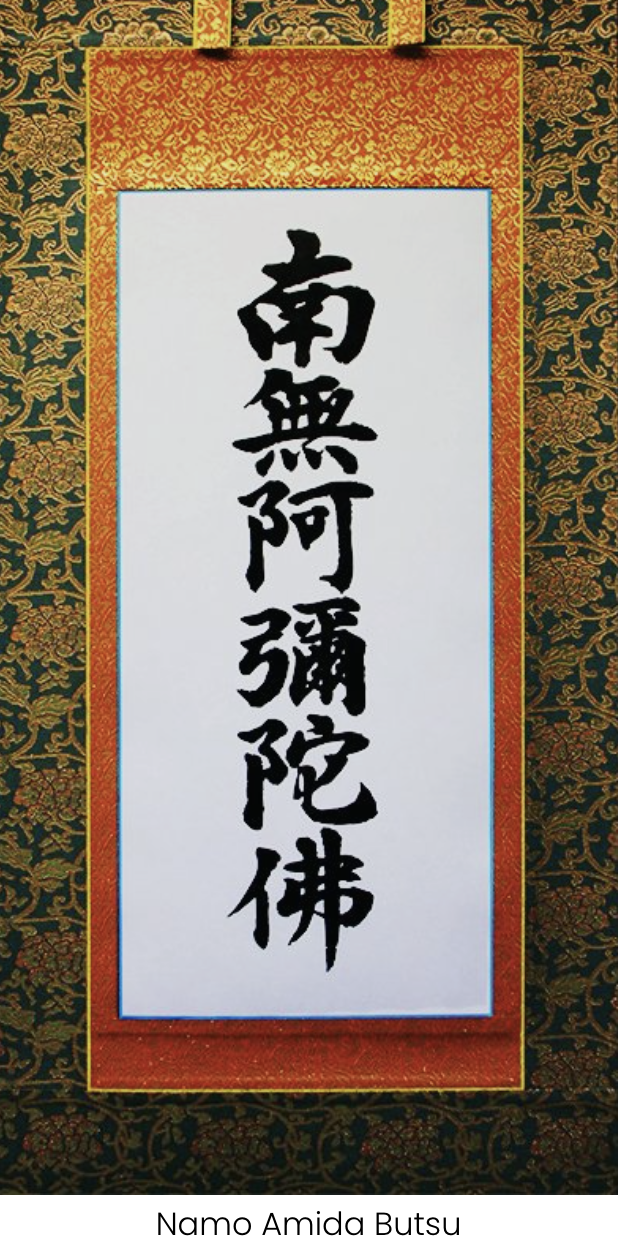 南無阿彌陀佛
Namo Amida Butsu